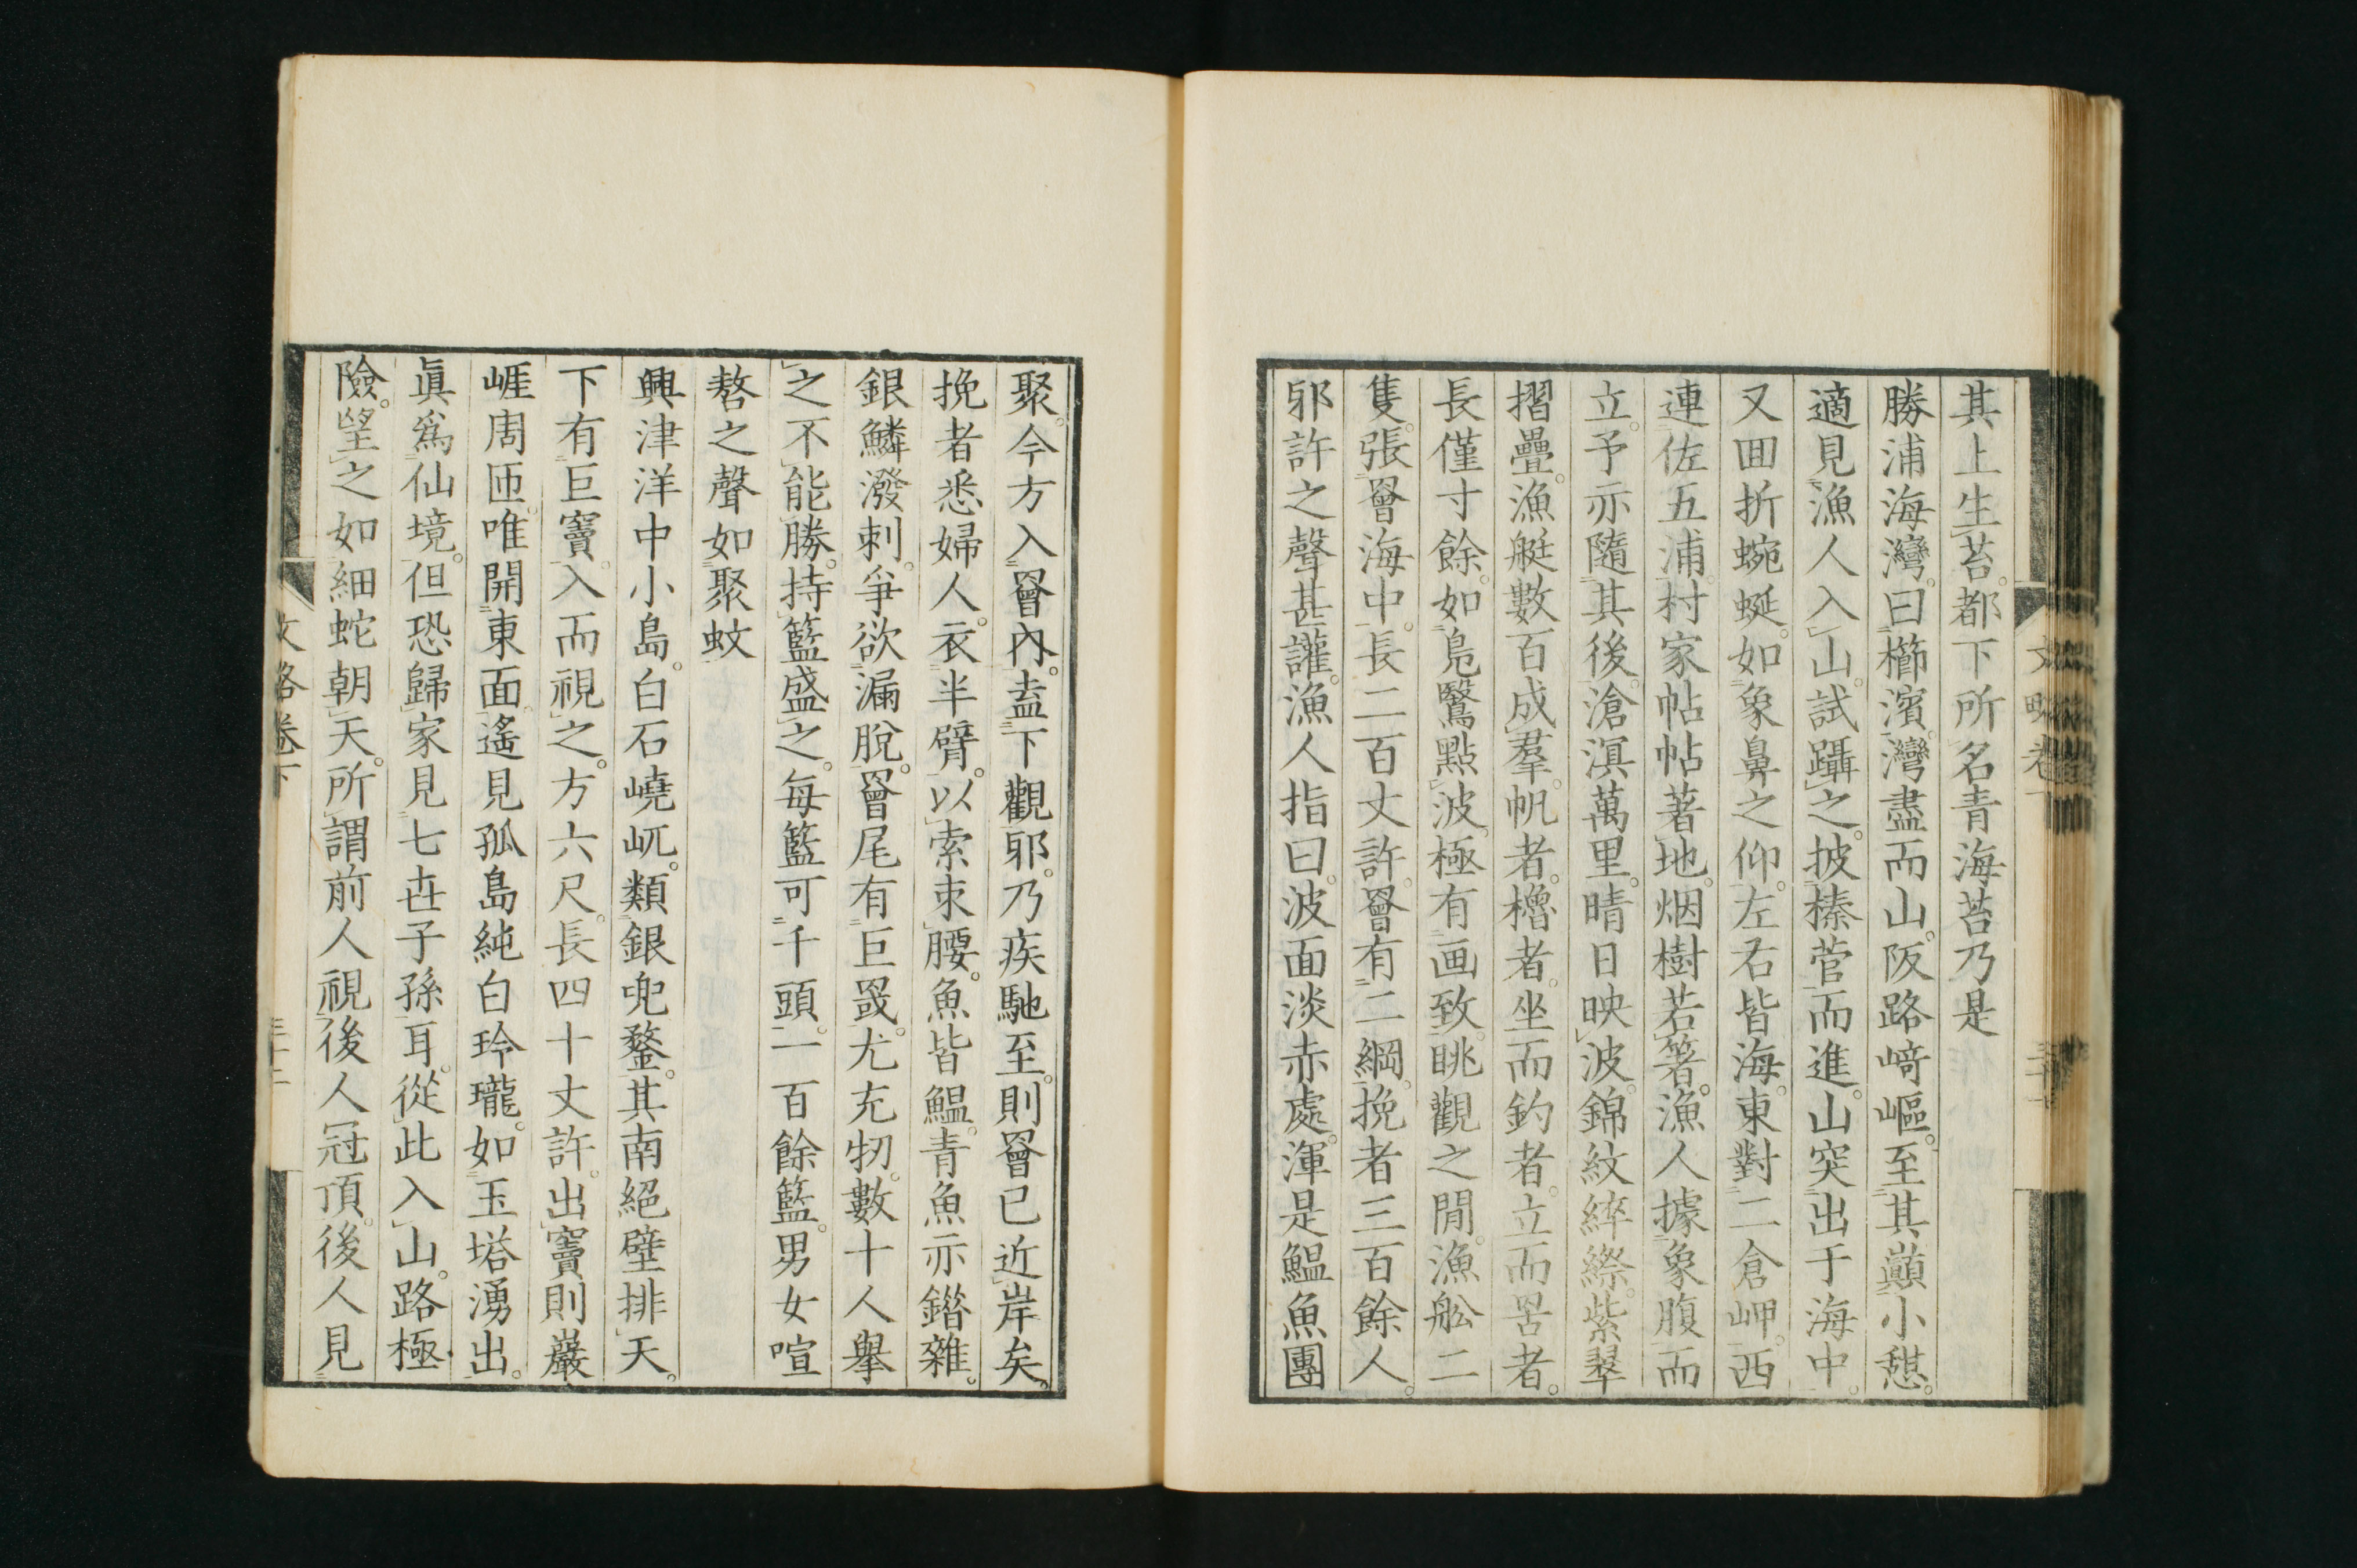 其上生苔。都下所名青海苔乃是
勝浦海灣。曰櫛濱。灣盡而山。阪路﨑嶇。至其巔小憩。
適見漁人入山。試躡之。披榛菅而進。山突出于海中。
又回折蜿蜒。如象鼻之仰。左右皆海。東對二倉岬。西
連佐五浦。村家帖帖著地。烟樹若箸。漁人據象腹而
立。予亦隨其後。滄溟萬里。晴日映波。錦紋綷縩。紫翠
摺疊。漁艇數百成羣。帆者。櫓者。坐而釣者。立而罟者。
長僅寸餘。如鳧鷖點波。極有画致。眺觀之間。漁舩二
隻。張罾海中。長二百丈許。罾有二綱。挽者三百餘人。
邪許之聲甚讙。漁人指曰。波面淡赤處。渾是鰮魚團
聚。今方入罾內。盍下觀邪。乃疾馳至。則罾已近岸矣。
挽者悉婦人。衣半臂。以索束腰。魚皆鰮。青魚亦錯雜。
銀鱗潑剌。爭欲漏脫。罾尾有巨罭。尤充牣。數十人舉
之不能勝。持籃盛之。每籃可千頭。一百餘籃。男女喧
嗸之聲如聚蚊
興津洋中小島。白石嶢屼。類銀兜鍪。其南絕壁排天。
下有巨竇。入而視之。方六尺。長四十丈許。出竇則巖
崕周匝。唯開東面。遙見孤島純白玲瓏。如玉塔湧出。
眞爲仙境。但恐歸家見七世子孫耳。從此入山。路極
險。望之如細蛇朝天。所謂前人視後人冠頂。後人見
文略卷下
三十二